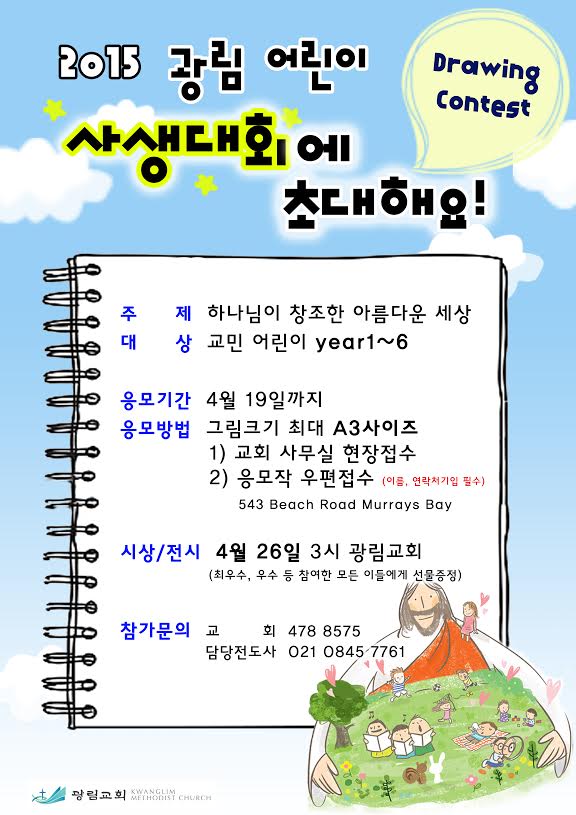 2015 광림 어린이
사생대회에
초대해요!
Drawing
Contest
주 제 하나님이 창조한 아름다운 세상
대 상 교민 어린이 year1~6
응모기간 4월 19일까지
응모방법 그림크기 최대 A3사이즈
1) 교회 사무실 현장접수
2) 응모작 우편접수 (이름, 연락처기입 필수)
543 Beach Road Murrays Bay
시상/전시 4월 26일 3시 광림교회
(최우수, 우수 등 참여한 모든 이들에게 선물증정)
참가문의 교 회 478 8575
담당전도사 021 0845 7761
광림교회 KWANGLIM
METHODIST CHURCH